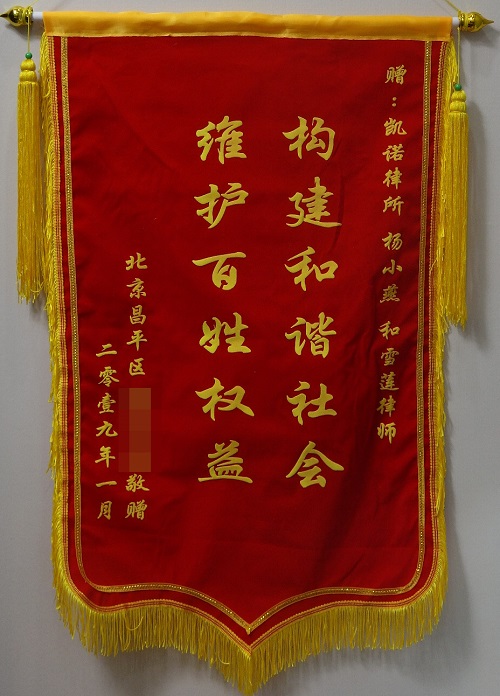 赠：凯诺律所 杨小燕 和雪莲律师
构建和谐社会
维护百姓权益
北京昌平区 敬赠
二零壹九年一月